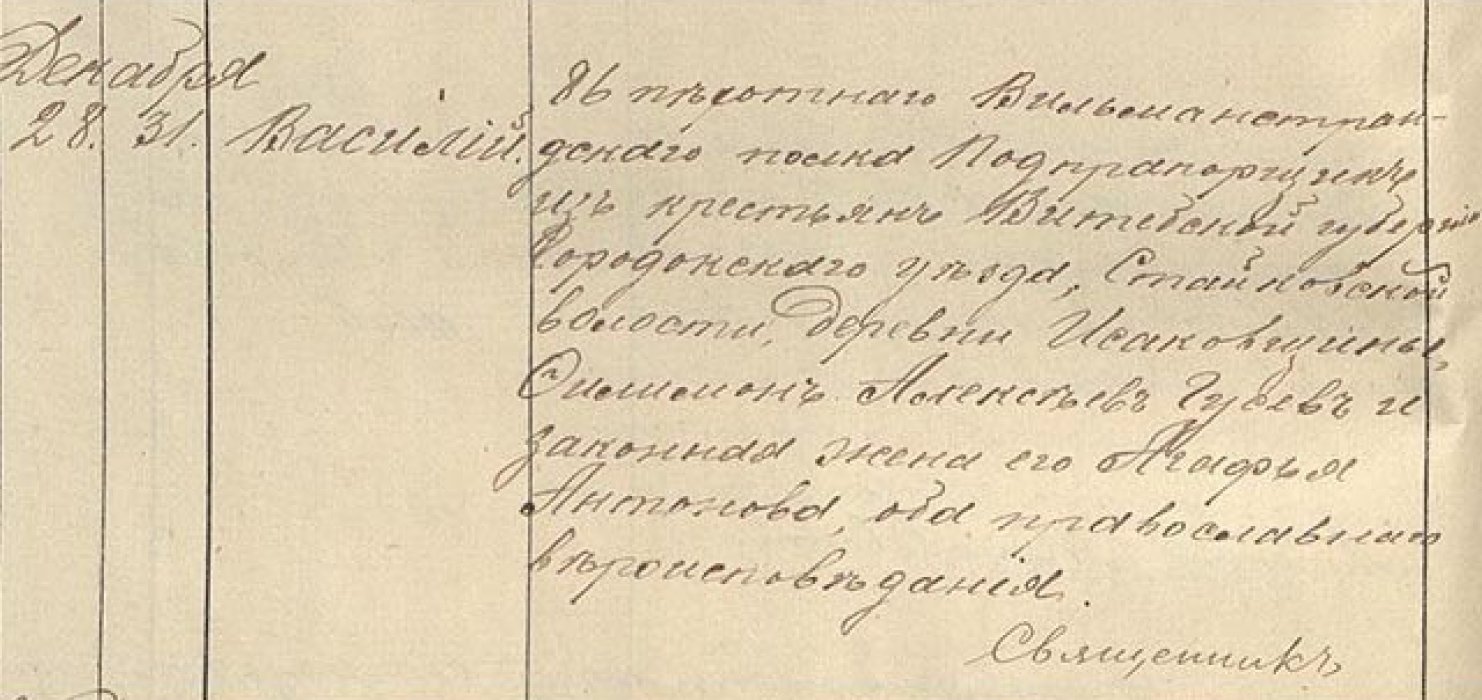 Декабря
28. 31. Василій.
86 пѣхотнаго Вильманстран-
дскаго полка Подпрапорщикъ
изъ крестьянъ Витебской губерніи
Городокскаго уѣзда, Стайковской
волости, деревни Исаковщины,
Филимонъ Алексѣевъ Гусевъ и
законная жена его Агафья
Антонова, оба православнаго
вѣроисповѣданія.
Священникъ